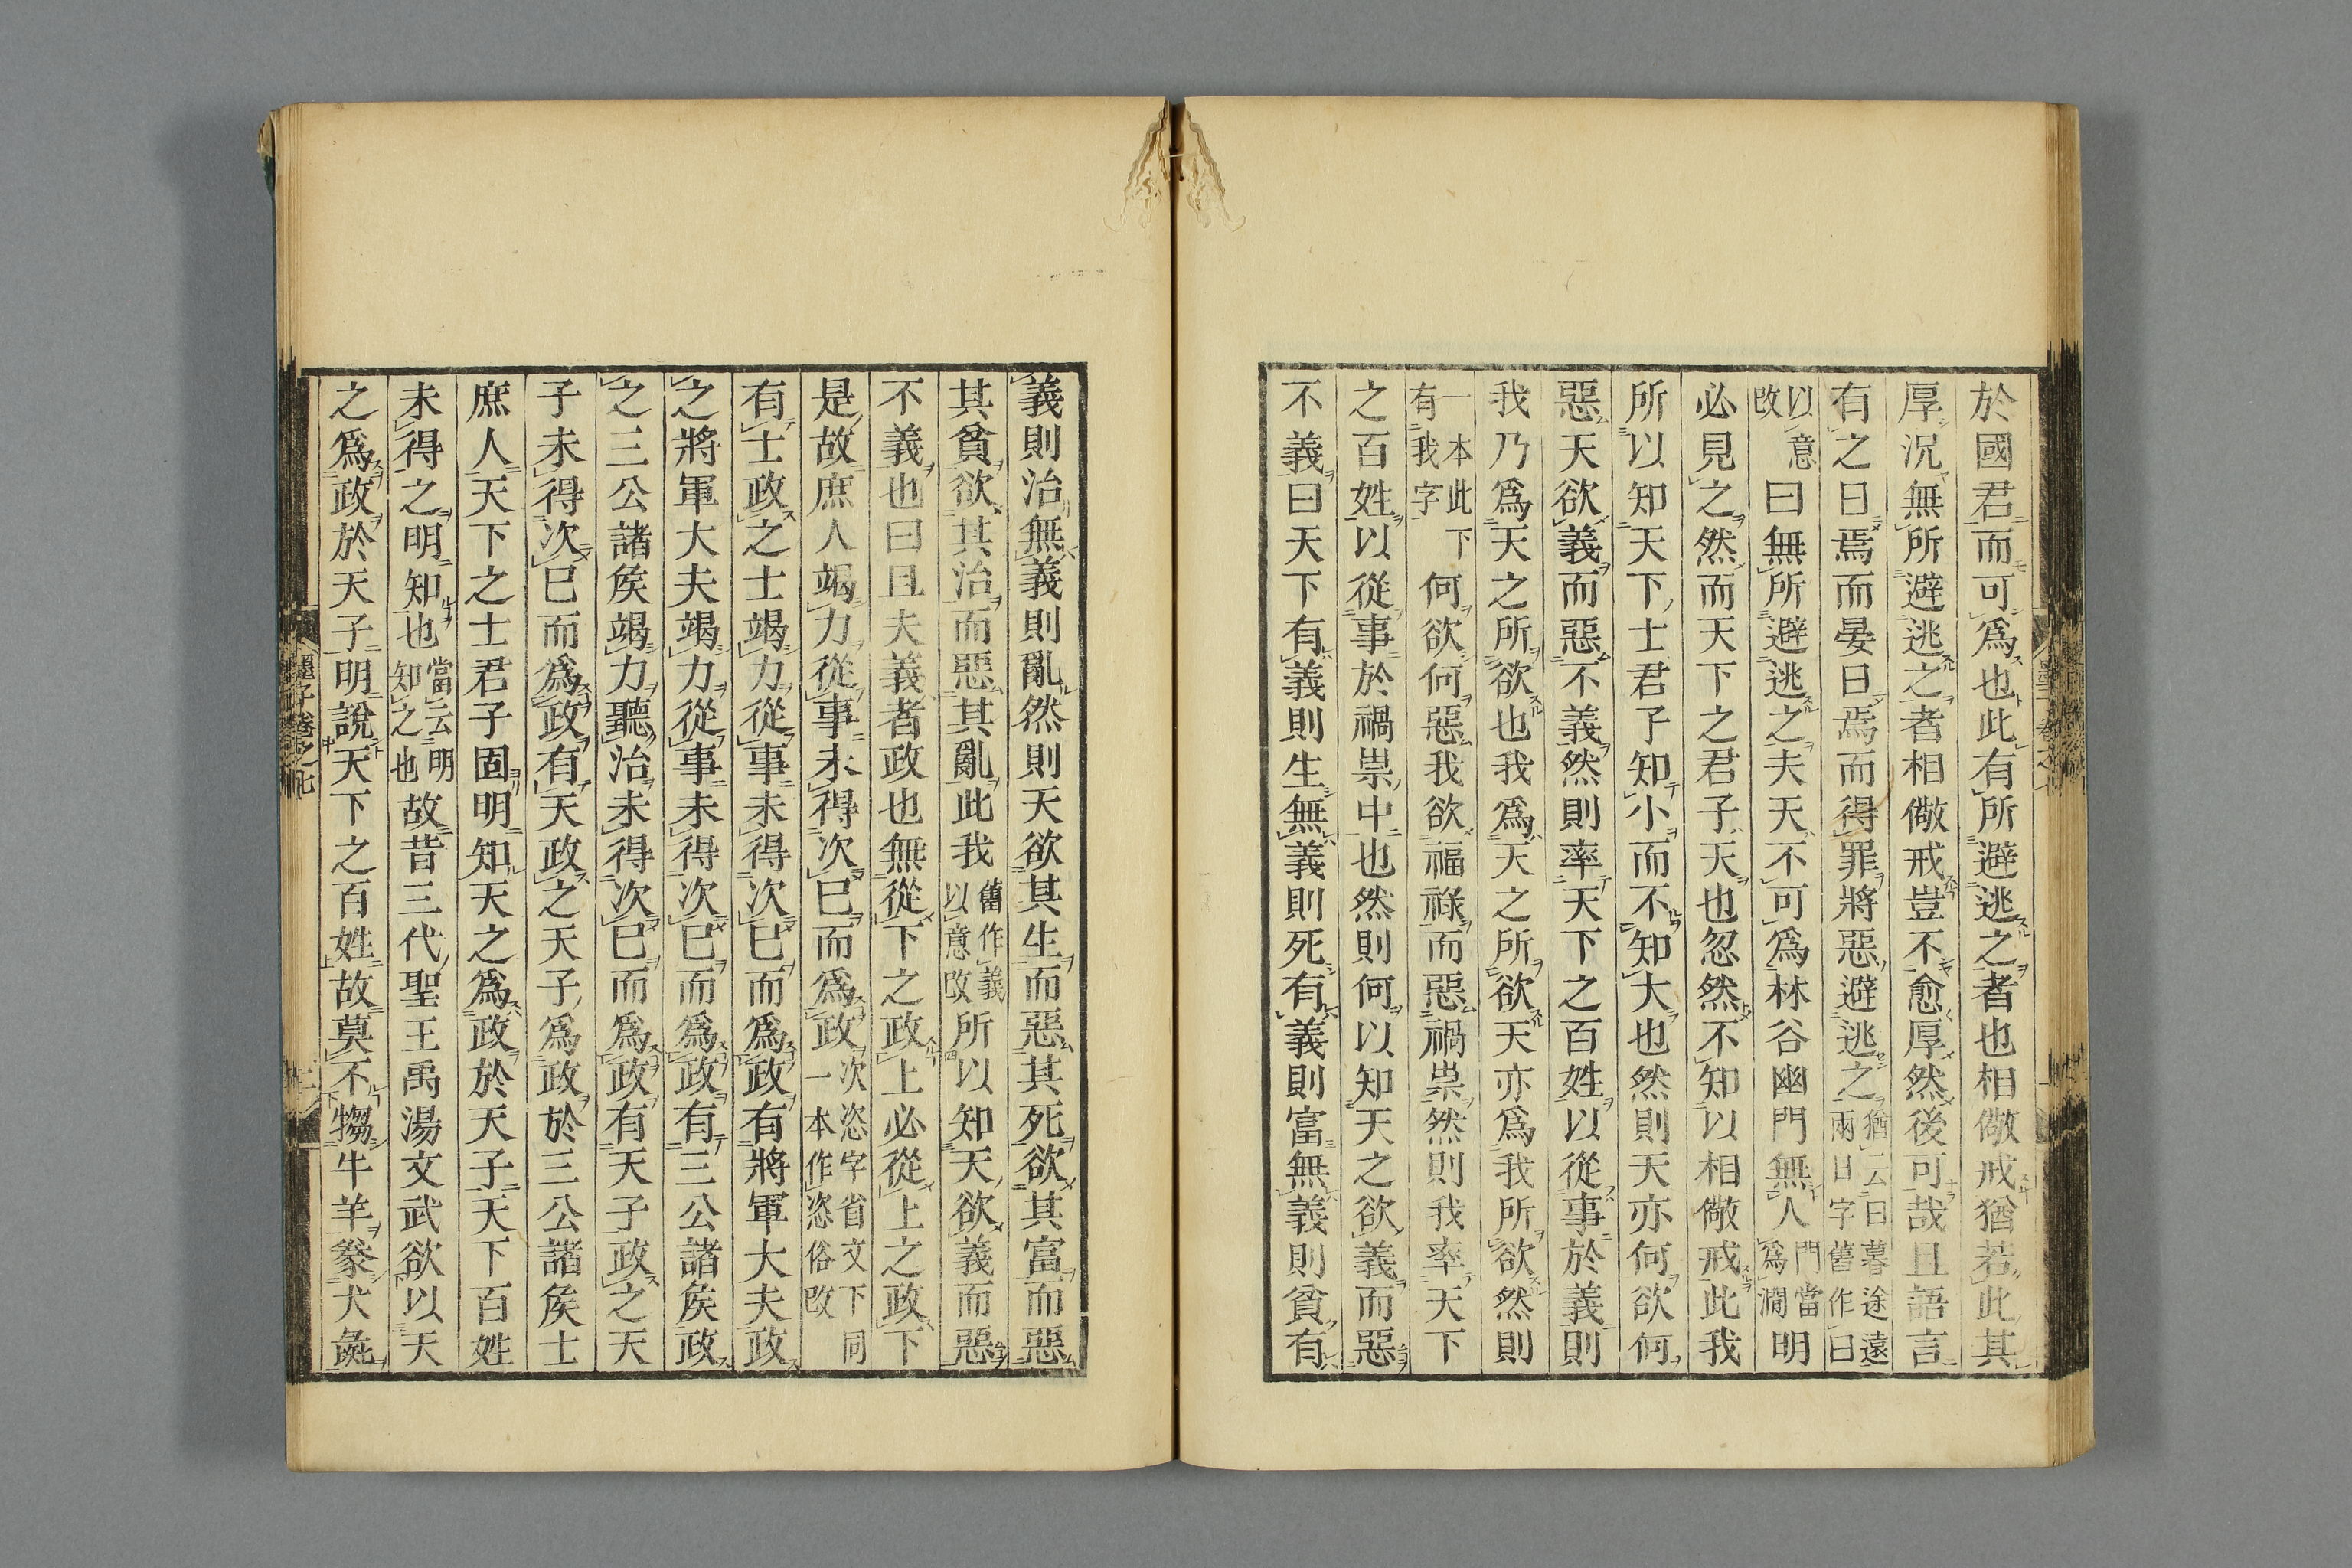 於國君而可爲也此有所避逃之者也相儆戒猶若此其
厚況無所避逃之者相儆戒豈不愈厚然後可哉且語言
有之曰焉而晏日焉而得罪將惡避逃之猶云日暮途遠兩日字舊作曰
以意改曰無所避逃之夫天不可爲林谷幽門無人門當爲澗明
必見之然而天下之君子天也忽然不知以相儆戒此我
所以知天下士君子知小而不知大也然則天亦何欲何
惡天欲義而惡不義然則率天下之百姓以從事於義則
我乃爲天之所欲也我爲天之所欲天亦爲我所欲然則
一本此下有我字何欲何惡我欲福祿而惡禍祟然則我率天下
之百姓以從事於禍祟中也然則何以知天之欲義而惡
不義曰天下有義則生無義則死有義則富無義則貧有
義則治無義則亂然則天欲其生而惡其死欲其富而惡
其貧欲其治而惡其亂此我舊作義以意改所以知天欲義而惡
不義也曰且夫義者政也無從下之政上必從上之政下
是故庶人竭力從事未得次巳而爲政次恣字省文下同一本作恣俗改
有士政之士竭力從事未得次巳而爲政有將軍大夫政
之將軍大夫竭力從事未得次巳而爲政有三公諸矦政
之三公諸矦竭力聽治未得次巳而爲政有天子政之天
子未得次巳而爲政有天政之天子爲政於三公諸矦士
庶人天下之士君子固明知天之爲政於天子天下百姓
未得之明知也當云明知之也故昔三代聖王禹湯文武欲以天
之爲政於天子明說天下之百姓故莫不犓牛羊豢犬彘
墨子卷之七